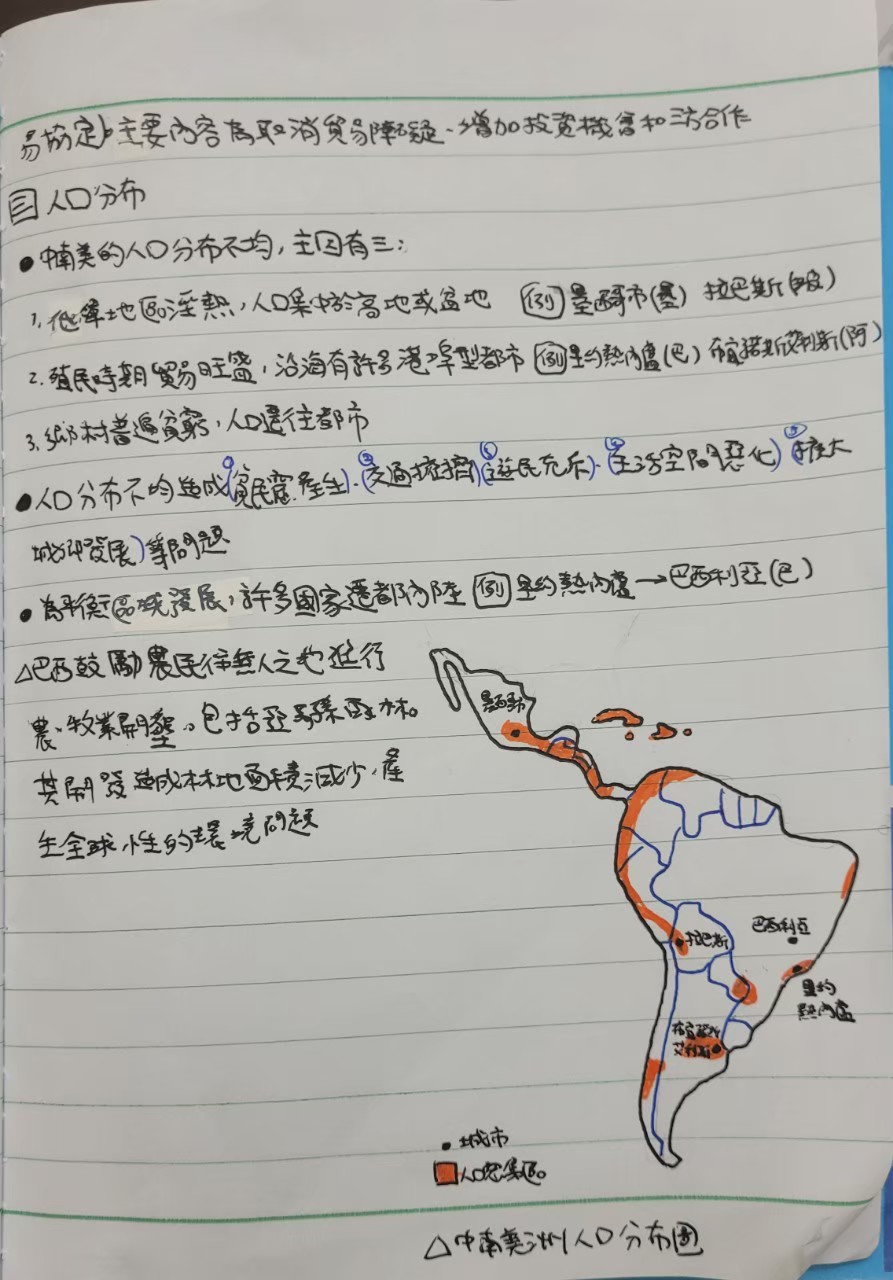 易協定)主要內容為取消貿易障礙、增加投資機會和三方合作
三 人口分布
● 中南美的人口分布不均,主因有三:
1. 低緯地區溼熱,人口集中於高地或盆地 例 墨西哥市(墨) 拉巴斯(玻)
2. 殖民時期貿易旺盛,沿海有許多港埠型都市 例 里約熱內盧(巴) 布宜諾斯艾利斯(阿)
3. 鄉村普遍貧窮,人口遷往都市
● 人口分布不均造成①(貧民窟產生)、②(交通擁擠)③(遊民充斥)、④(生活空間惡化)⑤(擴大
城鄉發展)等問題
● 為平衡區域發展,許多國家遷都內陸 例 里約熱內盧→巴西利亞(巴)
△巴西鼓勵農民往無人之地進行
農、牧業開墾。包括亞馬孫雨林。
其開發造成林地面積減少,產
生全球性的環境問題
墨西哥市
拉巴斯
巴西利亞
里約
熱內盧
布宜諾斯
艾利斯
● 城市
人口密集區
△中南美洲人口分布圖